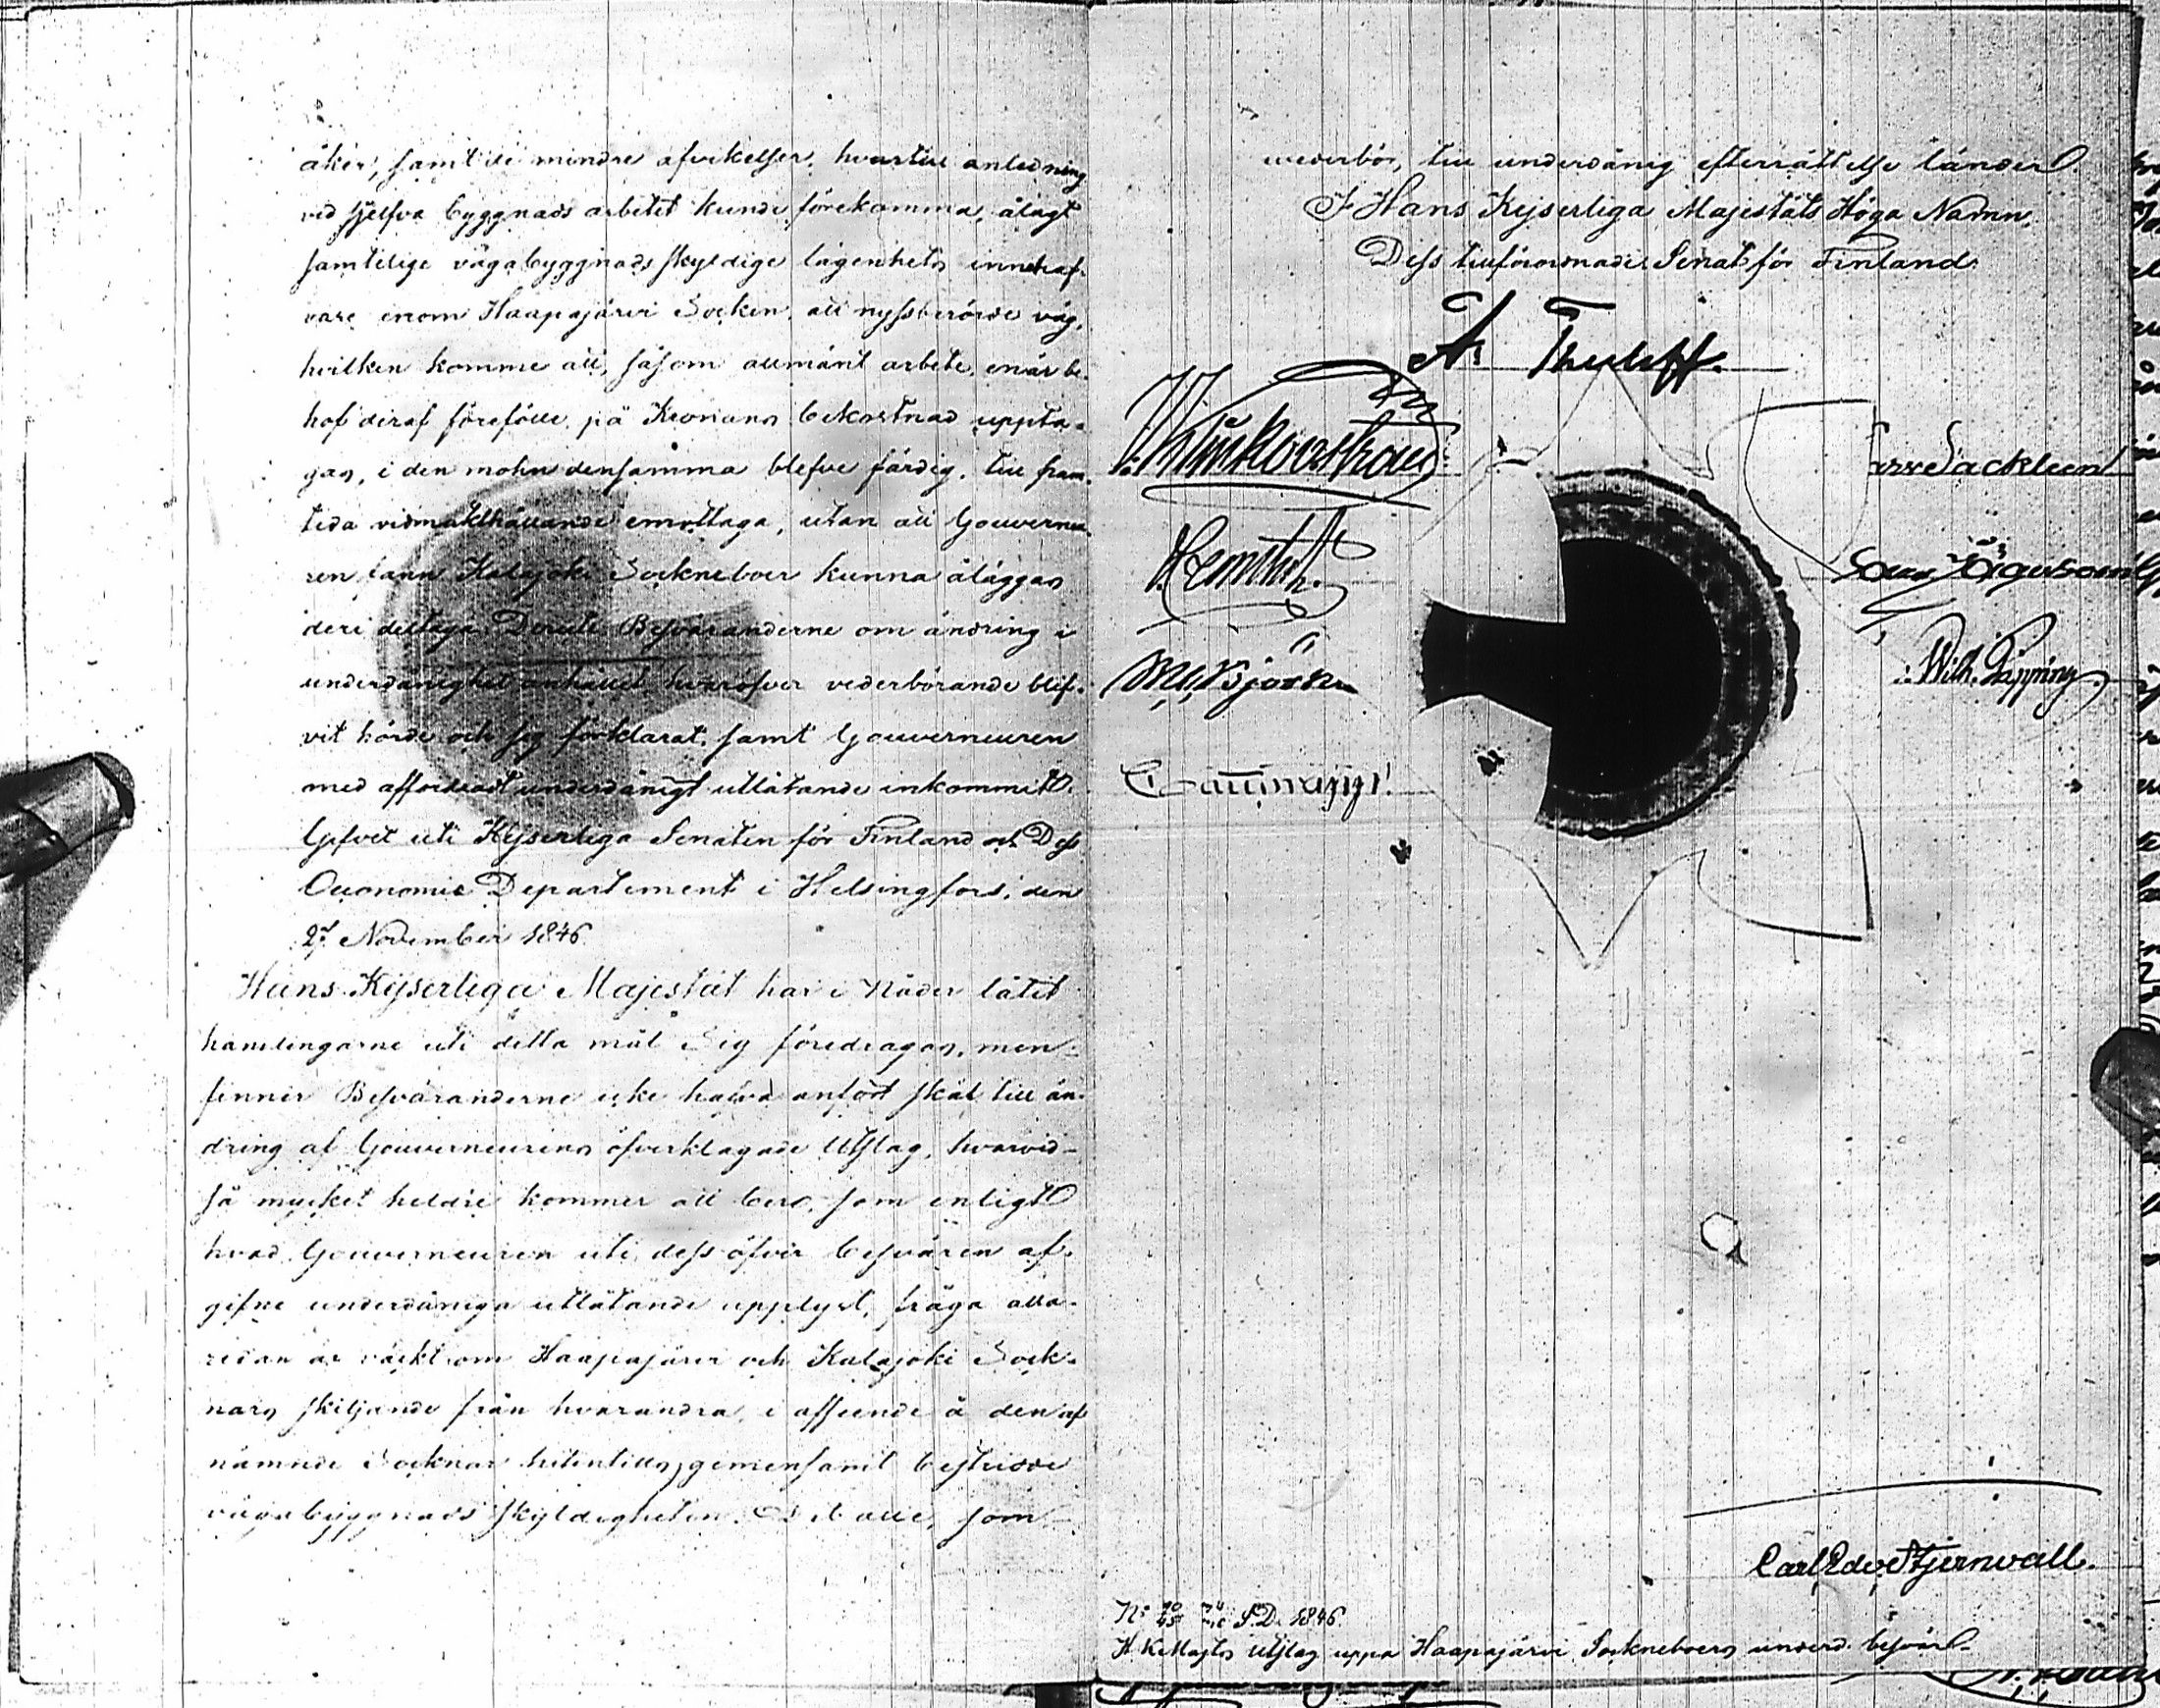 åker, samt de mindre afvikelser, hvartill anledning
vid sjelfva byggnads arbetet kunde förekomma, ålagt
samtelige vägabyggnads skyldige lägenhets innehaf-
vare inom Haapajärvi Socken, att nyssberörde väg,
hvilken komme att, såsom allmänt arbete, enär be-
hof deraf föreföll, på Kronans bekostnad uppta-
gas, i den mohn densamma blefve färdig, till fram-
tida vidmakthållande emottaga, utan att Gouverneu-
ren fann Kalajoki Sockneboer kunna åläggas
deri deltaga. Deruti Besväranderne om ändring i
underdånighet anhållit, hvaröfver vederbörande blif-
vit hörde och sig förklarat, samt Gouverneuren
med affordradt underdånigt utlåtande inkommit.
Gifvet uti Kejserliga Senaten för Finland och Dess
Oeconomie Departement i Helsingfors, den
27 November 1846.
Hans Kejserliga Majestät har i Nåder låtit
handlingarne uti detta mål Sig föredragas, men
finner Besväranderne icke hafva anfört skäl till än-
dring af Gouverneurens öfverklagade Utslag, hvarvid
så mycket heldre kommer att bero, som enligt
hvad Gouverneuren uti dess öfver besvären af-
gifne underdåniga utlåtande upplyst, fråga alla-
redan är väckt om Haapajärvi och Kalajoki Sock-
nars skiljande från hvarandra, i afseende å den af
nämnde Socknar hitintills gemensamt bestridde
vägabyggnads skyldigheten. Det alle, som
wederbör, till underdånig efterrättelse länder.
I Hans Kejserliga Majestäts Höga Namn,
Dess tillförordnade Senat för Finland
Carl Edv. Stjernvall.
S.D. 1846.
H. K. Majts Utslag uppå Haapajärvi Sockneboers underd. besvär